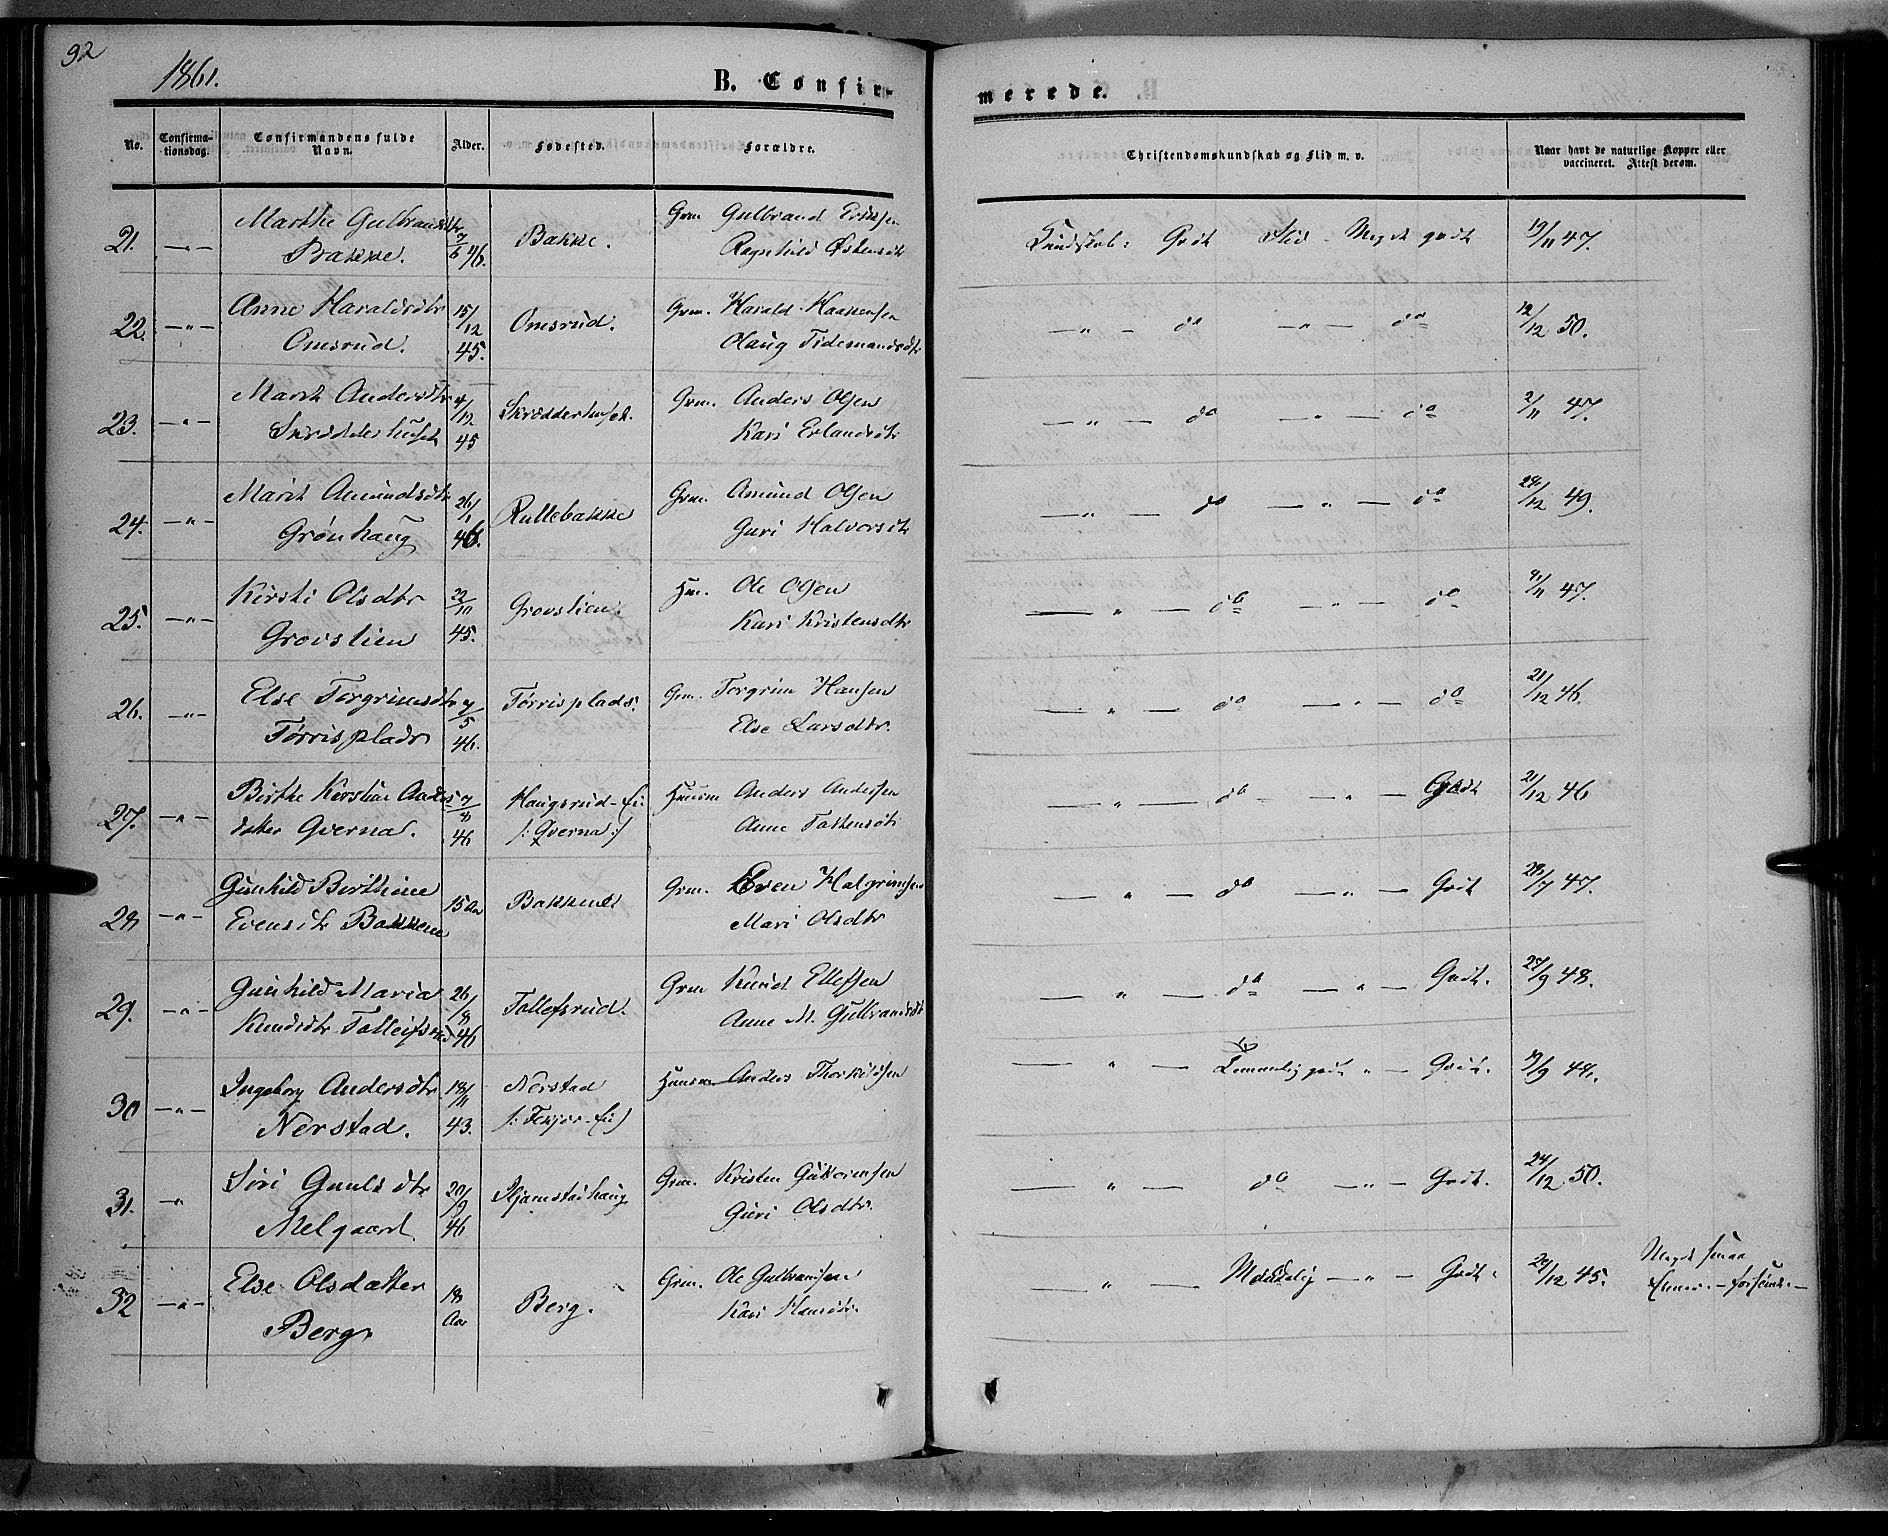 92
1861.
B. Confir-
merede.
No.
Confirma-
tionsdag.
Confirmandens fulde
Navn.
Alder.
Fødested.
Forældre.
Christendomskundskab og Flid m. v.
Naar havt de naturlige Kopper eller
vaccineret. Attest derom.
21. — " — Marthe Gulbrandsdtr 7/6 46. Bakke. Grm Gulbrand Eriksen Kundskab: Godt Flid Meget godt 19/11 47.
Bakke. Ragnhild Østensdtr
22. — " — Anne Haraldsdtr 15/12 45. Omsrud. Grm. Harald Haakensen — " — do — " — do 12/12 50.
Omsrud. Olaug Tidemandsdtr
23. — " — Marit Andersdtr 4/12 45 Skrædderhuset. Grm. Anders Olsen — " — do — " — do 2/11 47.
Skrædderhuset Kari Erlandsdtr
24. — " — Marit Amundsdtr 26/1 46. Rullebakke Grm. Amund Olsen — " — do — " — do 28/12 49.
Grønhaug Guri Halvorsdtr
25. — " — Kirsti Olsdtr 22/10 45. Grovslien. Hm. Ole Olsen — " — do — " — do 4/11 47.
Grovslien Kari Kristensdtr
26. — " — Else Torgrimsdtr 7/5 46. Tørrisplads. Grm. Torgrim Hansen — " — do — " — do 21/12 46.
Tørrisplads Else Larsdtr.
27. — " — Birthe Kirstine Anders 7/8 46 Haugsrud-Eie Huusm Anders Andersen — " — do — " — Godt 21/12 46
datter Qverna. /: Qverna :/ Anne Tostensdtr
28 — " — Gunhild Berthine 15 Aar Bakkene Grm. Even Halgrimsen — " — do — " — Godt 28/7 47.
Evensdtr Bakkene Mari Olsdtr
29. — " — Gunhild Maria 26/8 46 Tollefsrud. Grm Knud Ellefsen — " — do — " — Godt. 27/9 48.
Knudsdtr Tolleifsrud Anne M. Gulbrandsdtr
30 — " — Ingeborg Andersdtr 18/11 43. Nerstad Huusm Anders Thorkildsen — " — Temmelig godt " — Godt. /9 44.
Nerstad. /: Fekjær-Eie :/
31. " Siri Gunlsdtr 20/9 46 Hjamstadhaug Grm. Kristen Guttormsen — " — do — " — Godt. 24/12 50.
Melgaard. Guri Olsdtr.
32 — " — Else Olsdatter 18 Aar Berg. Grm. Ole Gulbrandsen " — Maadelig — " — Godt. 20/12 45. Meget smaa
Berg Kari Hansdtr. Evner. — forsømt. —